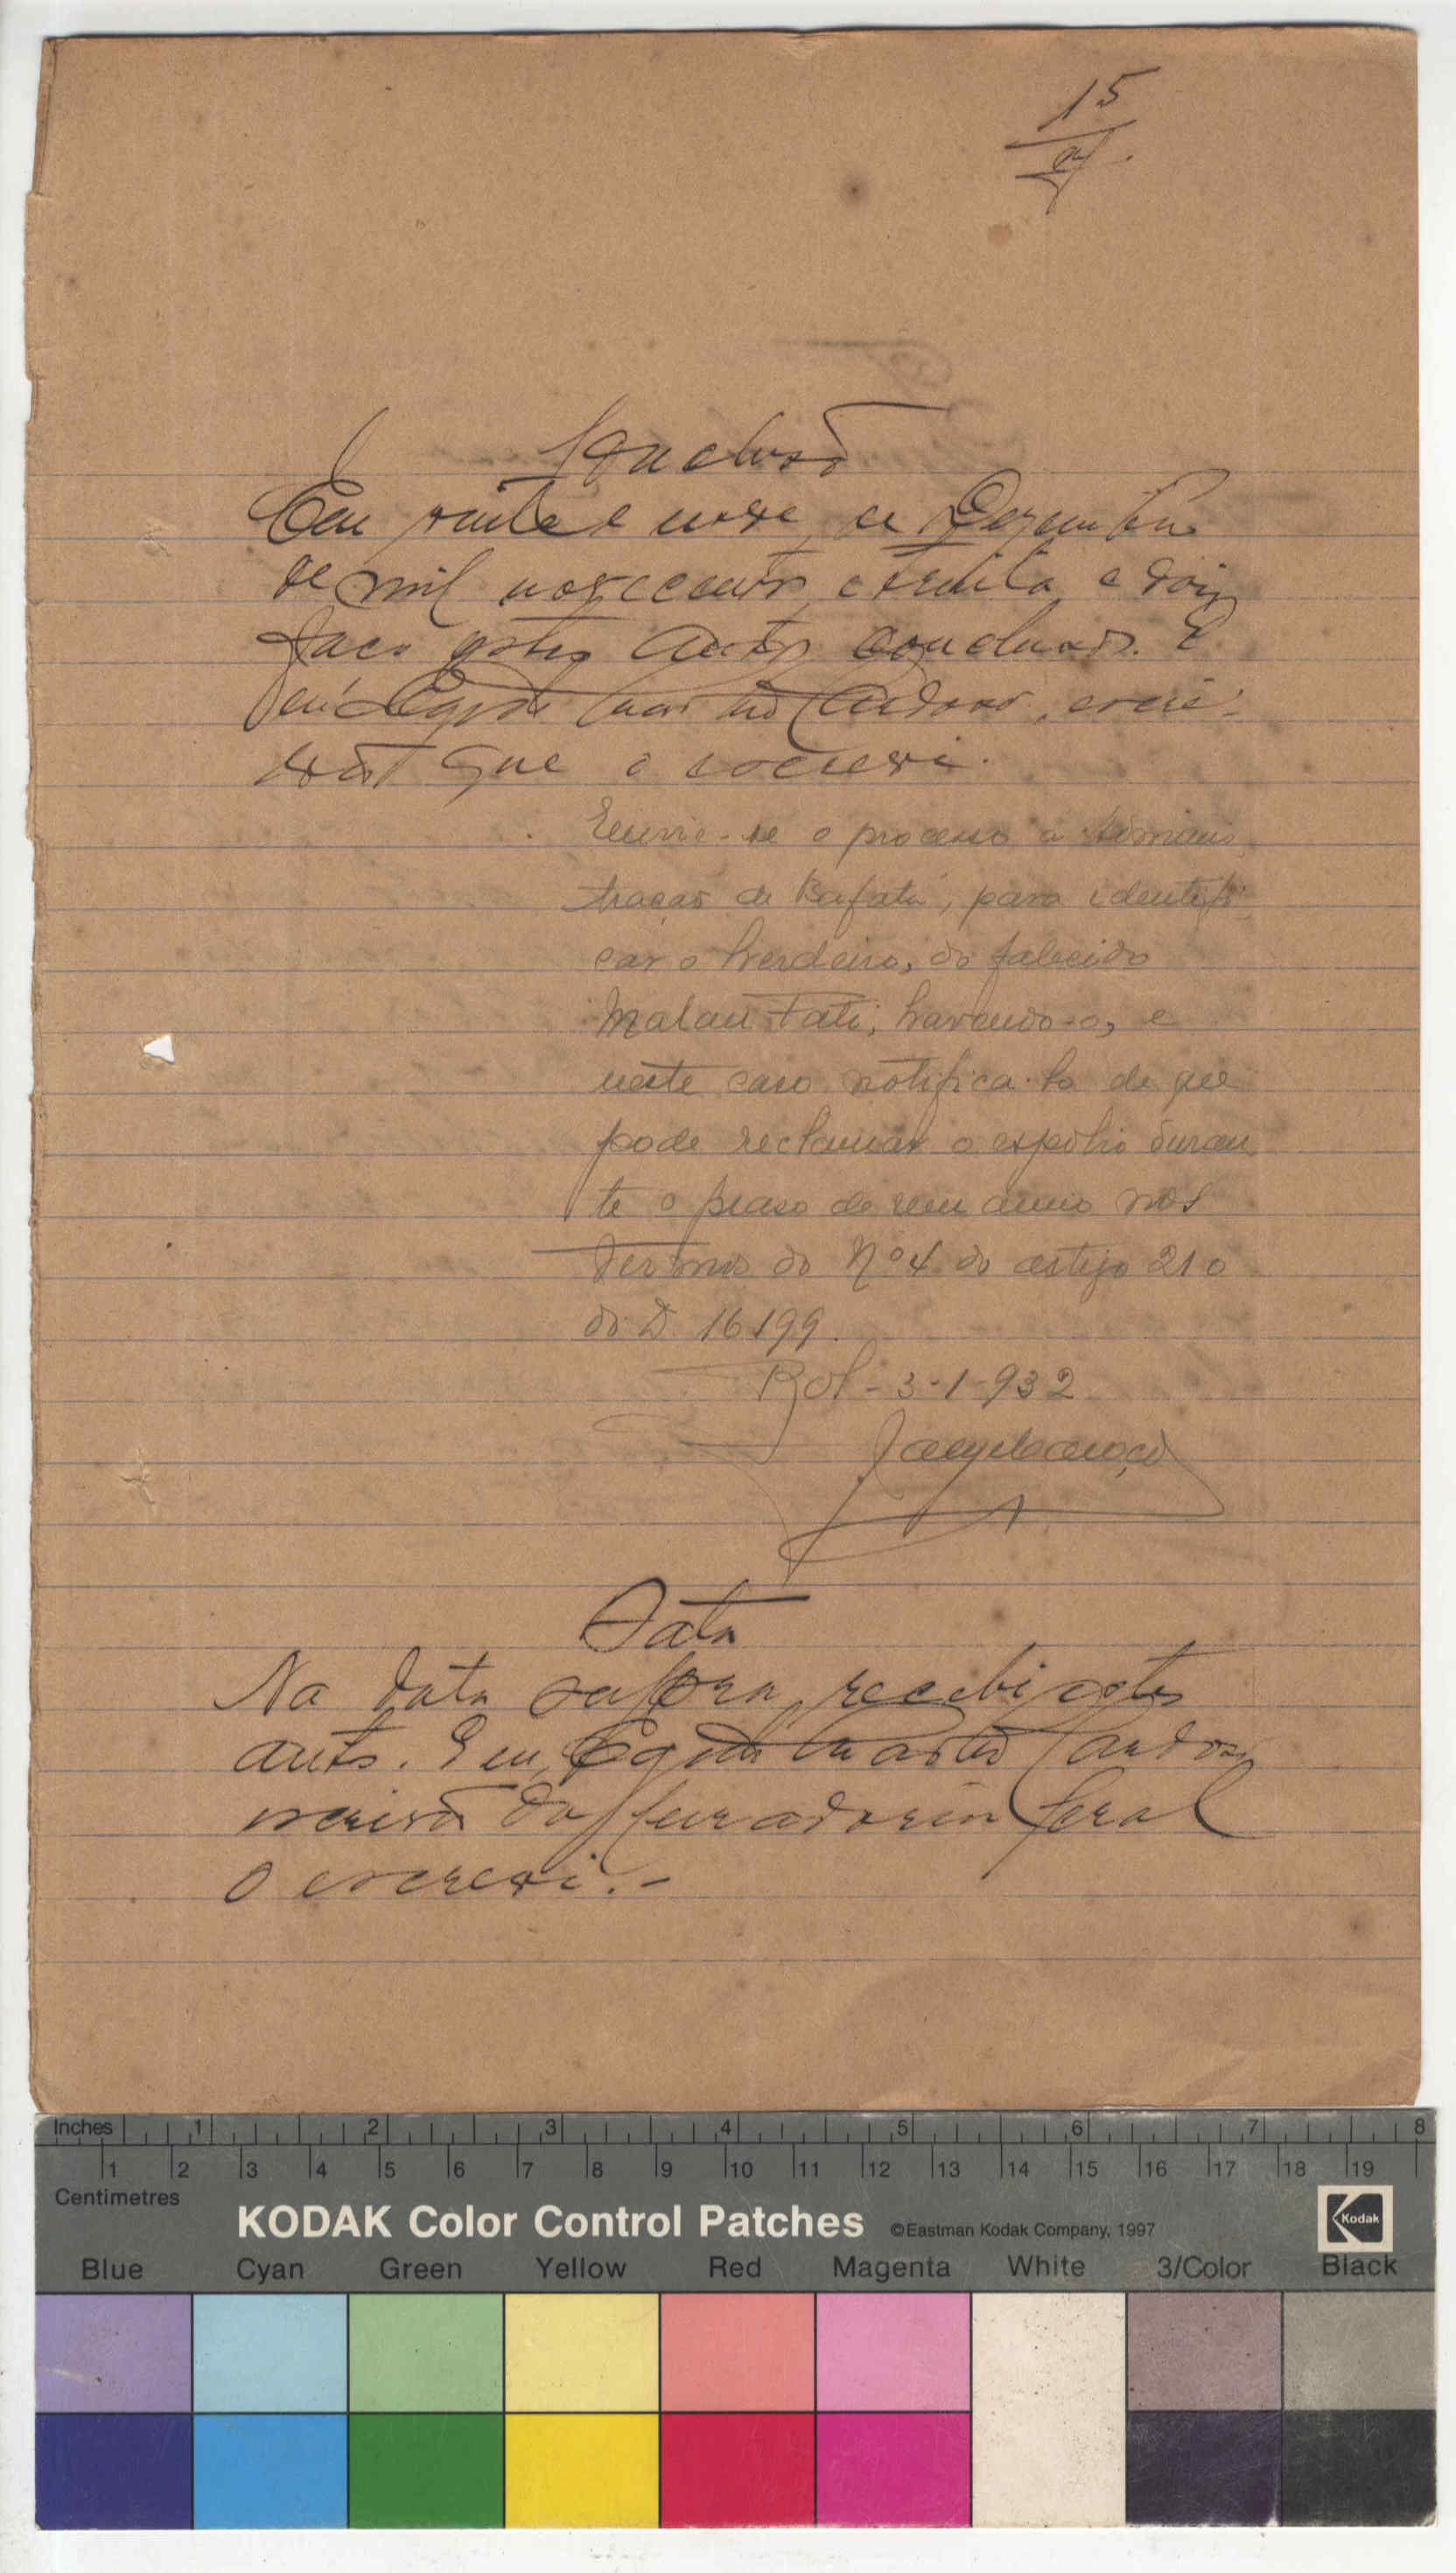 15
Conclusão
Em vinte e nove de Dezembro
de mil novecentos e trinta e dois
faço estes autos conclusos. E
eu Martins Cardoso, escri-
vão que o escrevi.
Envie-se o processo á Adminis
tração de Bafatá, para identifi-
car o herdeiro, do falecido
Malan Fati, havendo-o, e
neste caso notifica-lo de que
pode reclamar o espolio duran
te o praso de um anno nos
termos do Nº 4 do artigo 210
do D. 16199.
Bol-3-1-932
Data
Na data supra, recebi estes
autos. E eu, Martins Cardoso
escrivão da Curadoria Geral
o escrevi.-
Inches 1 2 3 4 5 6 7 8
1 2 3 4 5 6 7 8 9 10 11 12 13 14 15 16 17 18 19
Centimetres
KODAK Color Control Patches ©Eastman Kodak Company, 1997 Kodak
Blue Cyan Green Yellow Red Magenta White 3/Color Black